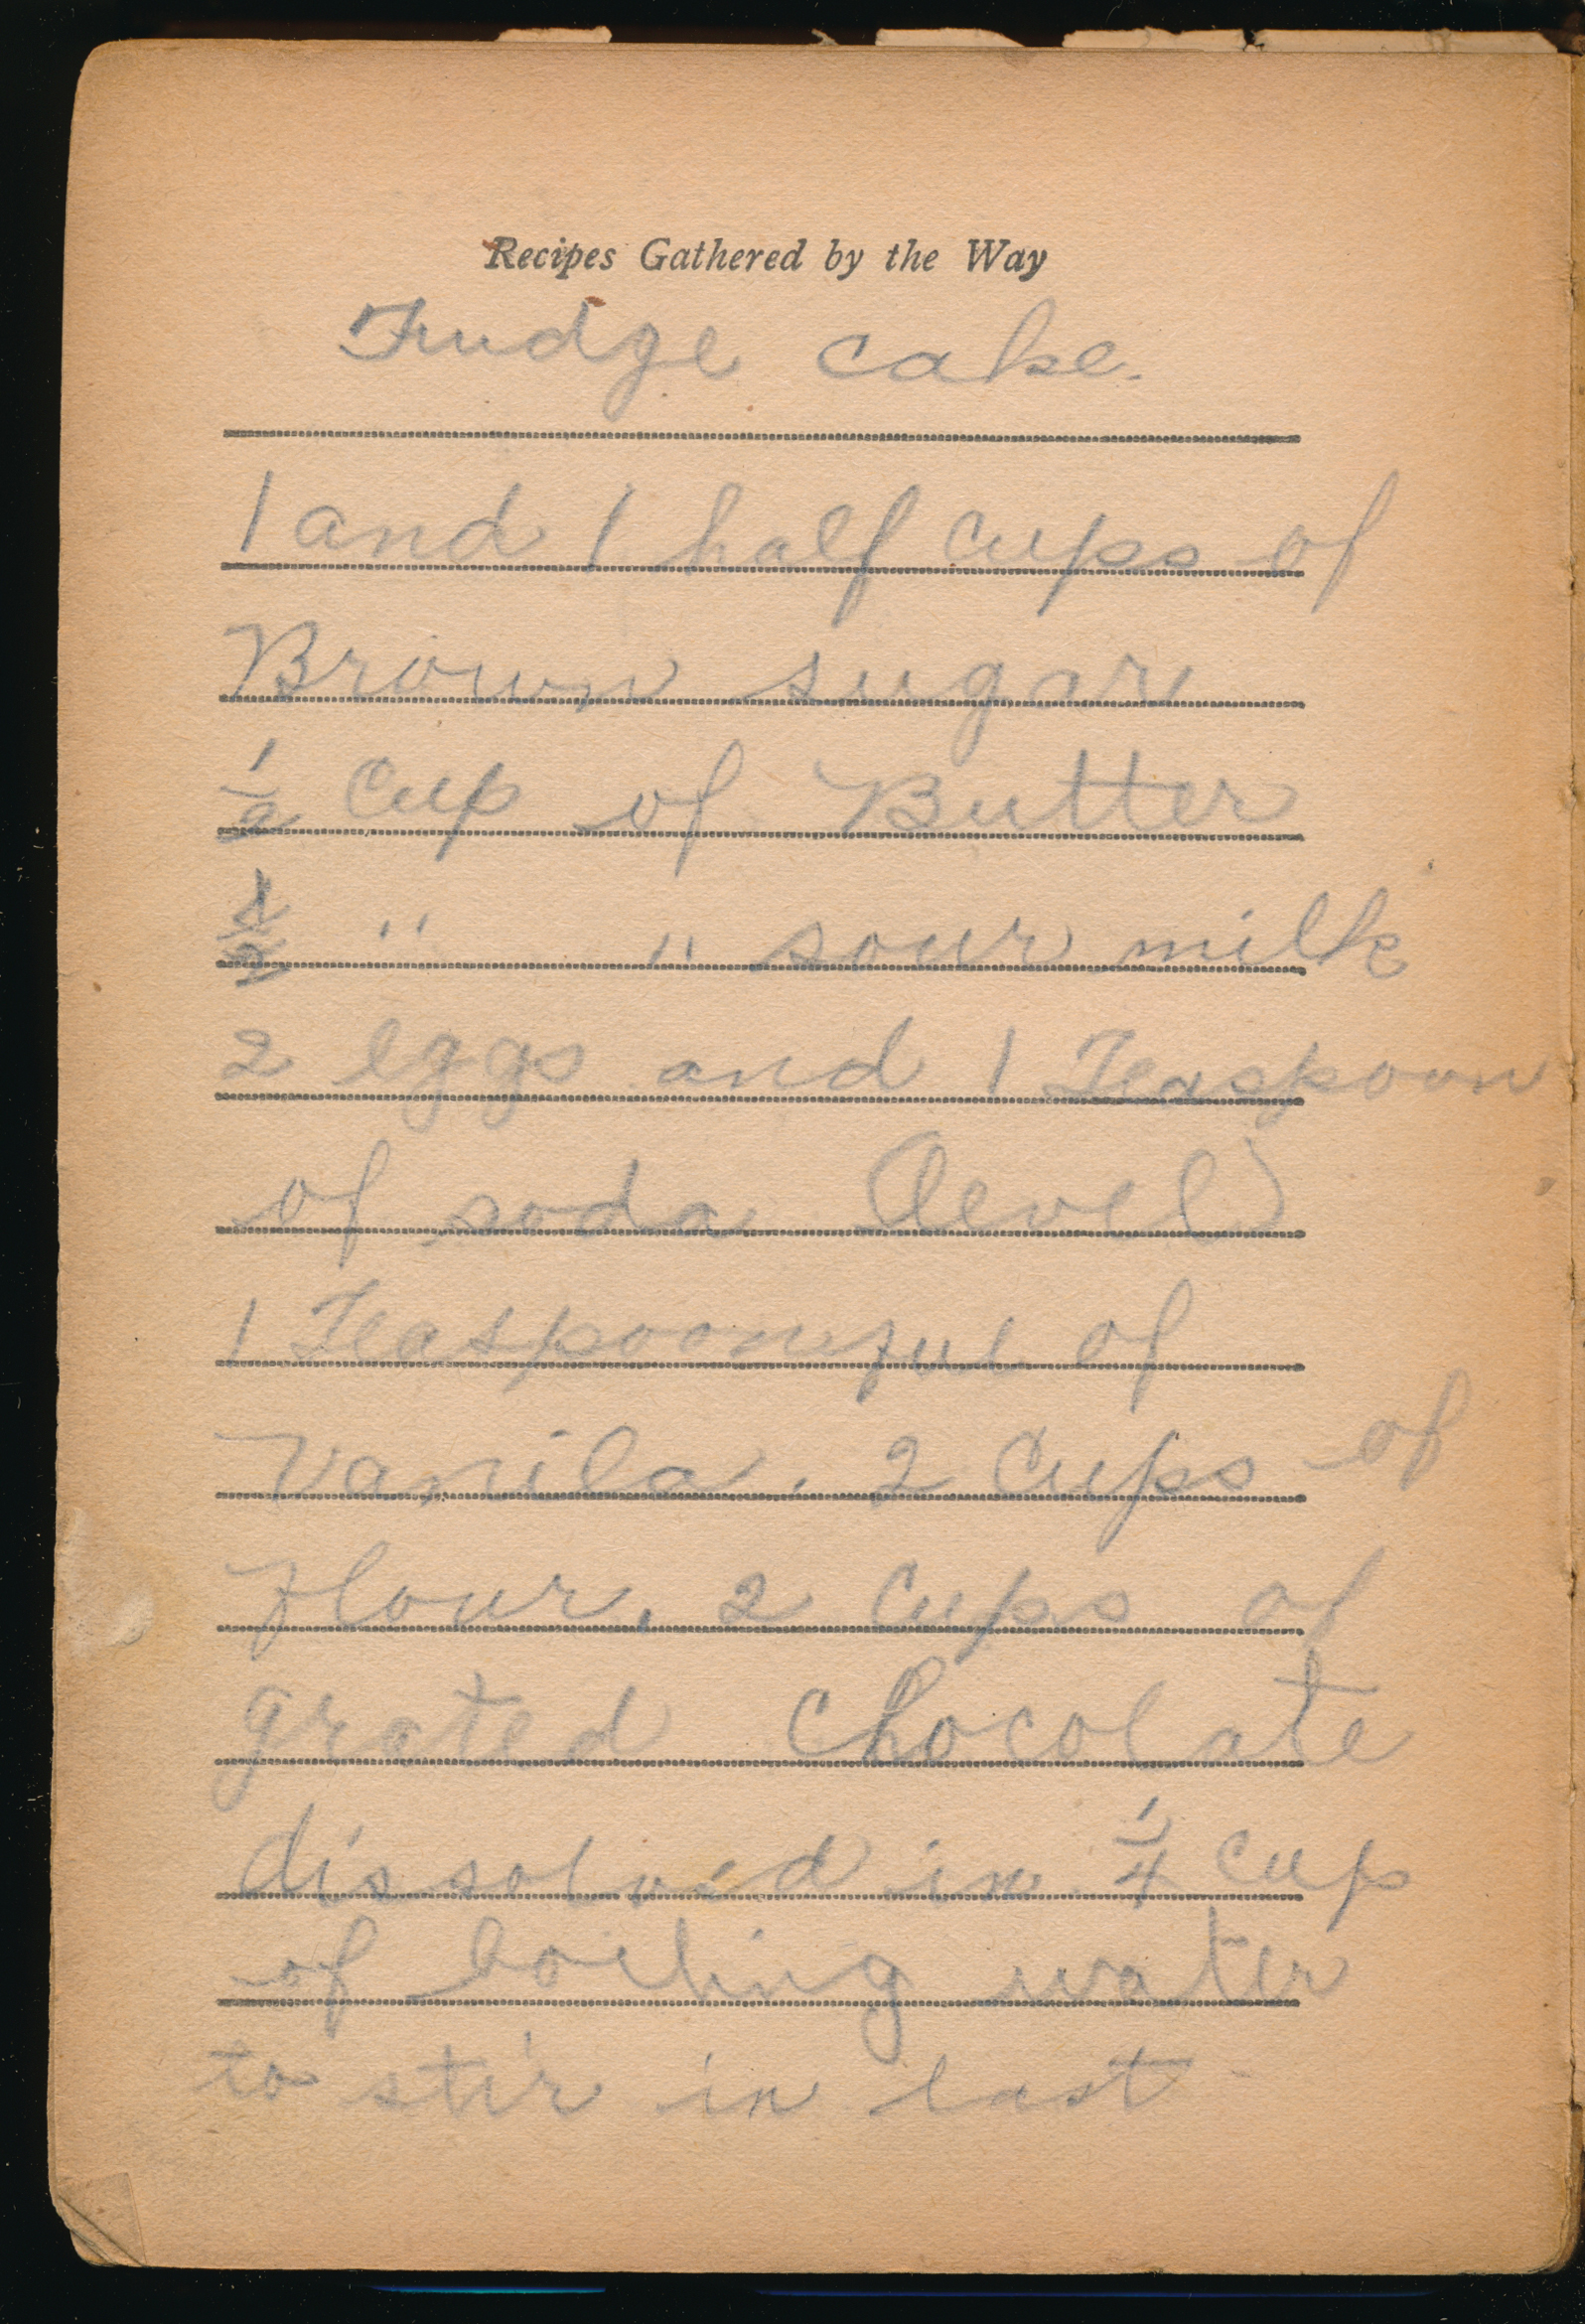 Recipes Gathered by the Way
Fudge cake.
1 and 1 half cups of
Brown sugar
1/2 Cup of Butter
1/2 " " sour milk
2 eggs and 1 Teaspoon
of soda (level)
1 Teaspoonful of
Vanila. 2 Cups of
Flour, 2 Cups of
grated Chocolate
dissolved in 1/4 cup
of boiling water
to stir in last